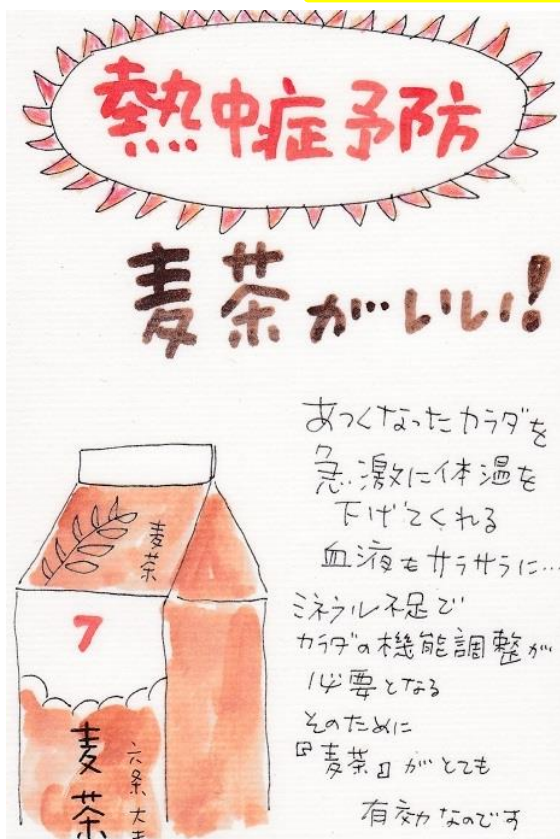 熱中症予防
麦茶がいい!
あつくなったカラダを
急激に体温を
下げてくれる
血液もサラサラに…
ミネラル不足で
カラダの機能調整が
必要となる
そのために
『麦茶』がとても
有効なのです
麦茶
7
麦茶
六条大麦